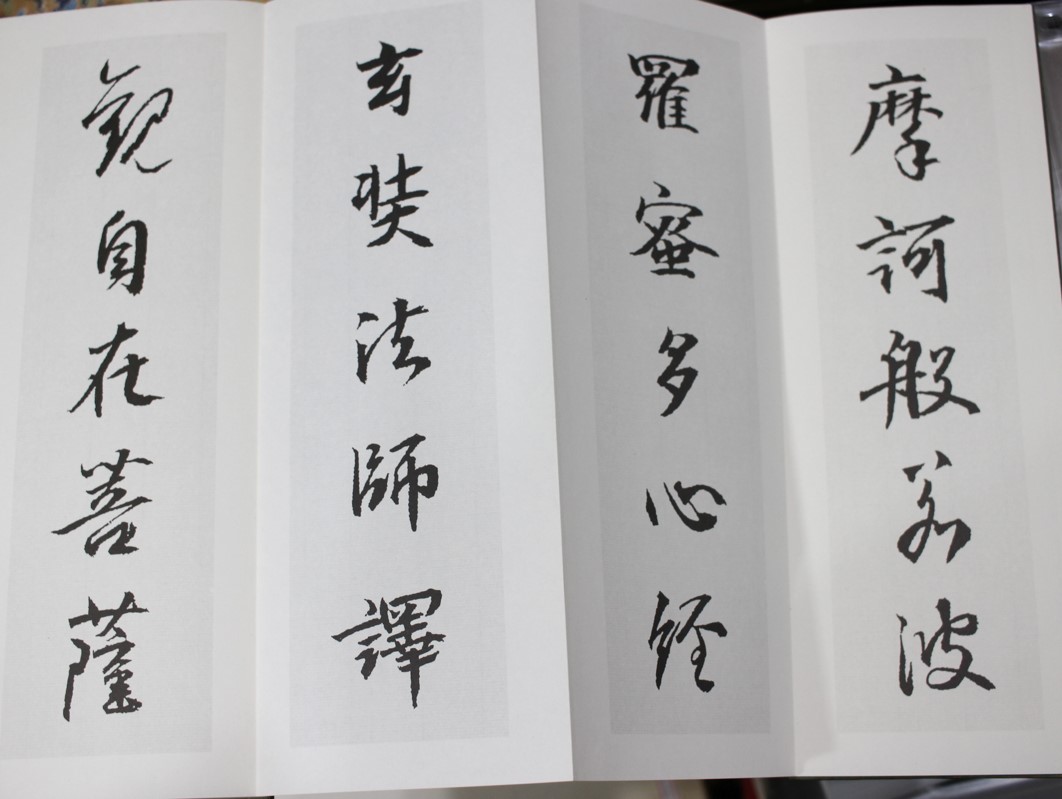 摩訶般若波
羅蜜多心經
玄奘法師譯
觀自在菩薩